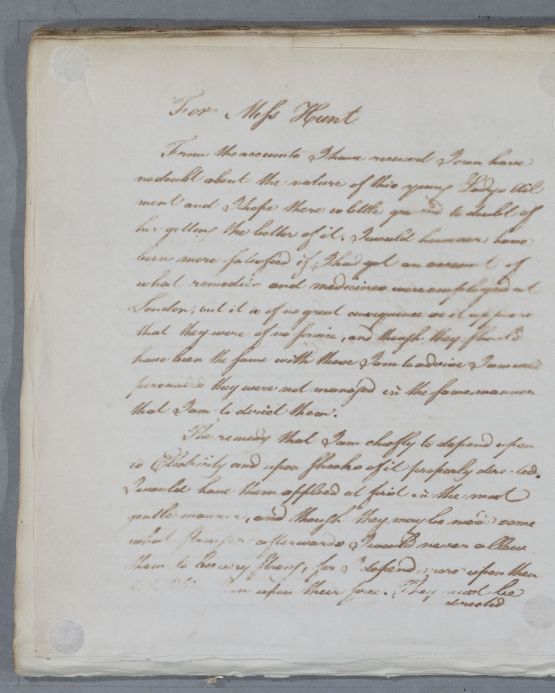 For Miss Hunt
From the accounts I have received I can have
no doubt about the nature of this young Lady's Ail
ment and I hope there is little ground to doubt of
her getting the better of it. I would however have
been more satisfied if I had got an account of
what remedies and medicines were employed at
London; but it is of no great consequence as it appears
that they were of no service, and though they should
have been the same with these I am to advise I am well
persuaded they were not managed in the same manner
that I am to direct them.
The remedy that I am chiefly to depend upon
is Electricity and upon Shocks of it properly directed.
I would have them applied at first in the most
gentle manner, and though they may be made some
what stronger afterwards I would never allow
them to be very strong for I depend more upon their
than upon their force. They must be
directed